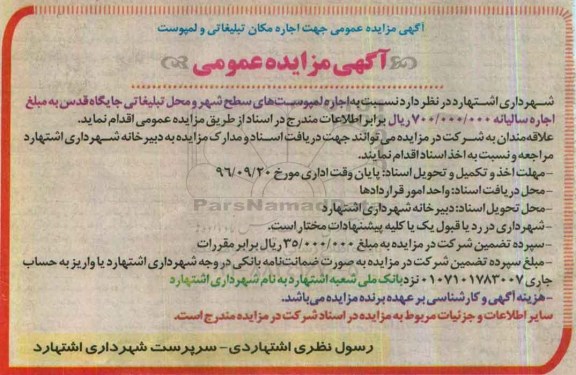 آگهی مزایده عمومی جهت اجاره مکان تبلیغاتی و لمپوست
آگهی مزایده عمومی
شهرداری اشتهارد در نظر دارد نسبت به اجاره لمپوست‌های سطح شهر و محل تبلیغاتی جایگاه قدس به مبلغ
اجاره سالیانه ۷۰۰/۰۰۰/۰۰۰ ریال برابر اطلاعات مندرج در اسناد از طریق مزایده عمومی اقدام نماید.
علاقه‌مندان به شرکت در مزایده می توانند جهت دریافت اسناد و مدارک مزایده به دبیرخانه شهرداری اشتهارد
مراجعه و نسبت به اخذ اسناد اقدام نمایند.
-مهلت اخذ و تکمیل و تحویل اسناد: پایان وقت اداری مورخ ۹۶/۰۹/۲۰
-محل دریافت اسناد: واحد امور قراردادها
-محل تحویل اسناد: دبیرخانه شهرداری اشتهارد
ParsNamadData
-شهرداری در رد یا قبول یک یا کلیه پیشنهادات مختار است.
-سپرده تضمین شرکت در مزایده به مبلغ ۳۵/۰۰۰/۰۰۰ ریال برابر مقررات
-مبلغ سپرده تضمین شرکت در مزایده به صورت ضمانت‌نامه بانکی در وجه شهرداری اشتهارد یا واریز به حساب
جاری ۰۱۰۷۱۰۱۷۸۳۰۰۷ نزد بانک ملی شعبه اشتهارد به نام شهرداری اشتهارد
-هزینه آگهی و کارشناسی بر عهده برنده مزایده می‌باشد.
سایر اطلاعات و جزئیات مربوط به مزایده در اسناد شرکت در مزایده مندرج است.
رسول نظری اشتهاردی- سرپرست شهرداری اشتهارد